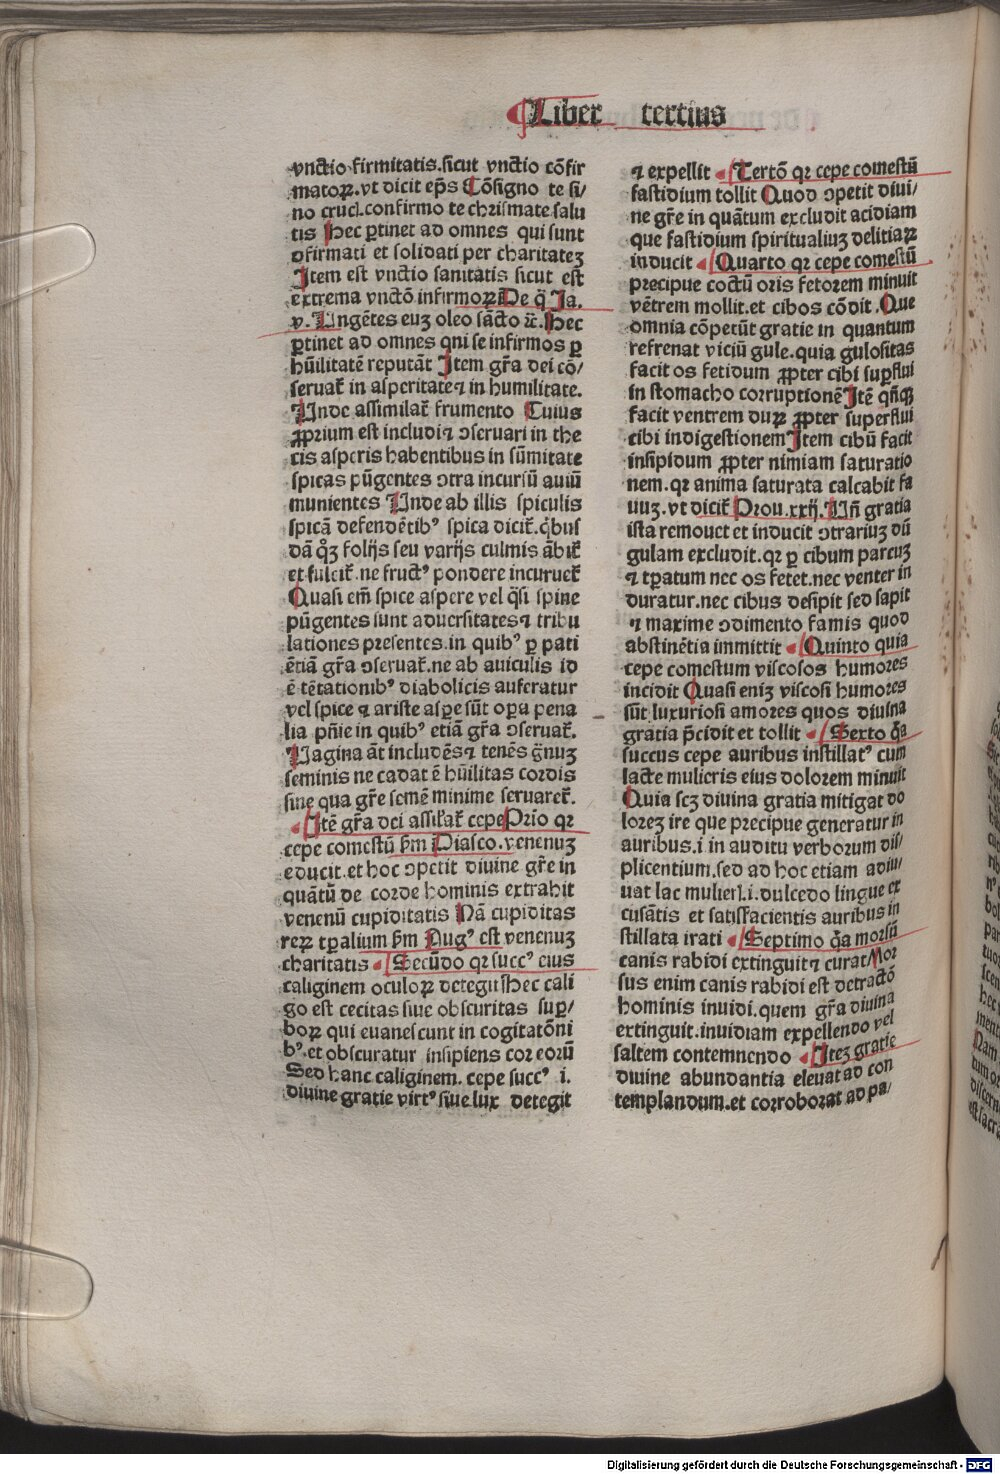 Liber tertius
vnctio firmitatis.sicut vnctio cōfir
matoꝝ.vt dicit ep̄s Cōsigno te si/
no cruci.confirmo te chrismate salu
tis Hec ꝑtinet ad omnes qui sunt
ↄfirmati et solidati per charitateꝫ
Item est vnctio sanitatis sicut est
extrema vnctō infirmoꝝ De q̄ Ja.
v. Ungētes euꝫ oleo sācto ⁊c̄. Hec
ꝑtinet ad omnes qni se infirmos ꝑ
hūilitatē reputāt Item gr̄a dei cō/
seruat̄ in asperitate⁊ in humilitate.
Unde assimilat̄ frumento Cuius
ꝓprium est includi⁊ ↄseruari in the
cis asperis habentibus in sūmitate
spicas pūgentes ↄtra incuriū auiū
munientes Unde ab illis spiculis
spicā defendētibꝰ spica dicit̄. q̄bus
dā q̊ꝫ folijs seu varijs culmis ābit̄
et fulcit̄. ne fructꝰ pondere incuruet̄
Quasi em̄ spice aspere vel q̄si spine
pūgentes sunt aduersitates⁊ tribu
lationes presentes.in quibꝰ ꝑ pati
ētiā gr̄a ↄseruat̄.ne ab auiculis id
ē tētationibꝰ diabolicis auferatur
vel spice ⁊ ariste asꝑe sūt oꝑa pena
lia pn̄ie in quibꝰ etiā gr̄a ↄseruat̄.
Uagina āt includēs⁊ tenēs g̈nuꝫ
seminis ne cadat ē hūilitas cordis
sine qua gr̄e semē minime seruaret̄.
Itē gr̄a dei assil̄at̄ cepe Prīo qꝛ
cepe comestū ẜm Diasco. venenuꝫ
educit.et hoc ↄpetit diuine gr̄e in
quātū de corde hominis extrahit
venenū cupiditatis Nā cupiditas
reꝝ tꝑalium ẜm Augꝰ est venenuꝫ
charitatis Secūdo qꝛ succꝰ eius
caliginem oculoꝝ detegit Hec cali
go est cecitas siue obscuritas suꝑ/
boꝝ qui euanescunt in cogitatōni
bꝰ.et obscuratur insipiens cor eorū
Sed hanc caliginem. cepe succꝰ i.
diuine gratie virtꝰ siue lux detegit
⁊ expellit Tertō qꝛ cepe comestū
fastidium tollit Quod ↄpetit diui/
ne gr̄e in quātum excludit acidiam
que fastidium spiritualiuꝫ delitiaꝝ
inducit Quarto qꝛ cepe comestū
precipue coctū oris fetorem minuit
vētrem mollit.et cibos cōdit. Que
omnia cōpetūt gratie in quantum
refrenat viciū gule.quia gulositas
facit os fetidum ꝓpter cibi suꝑflui
in stomacho corruptionē Itē qn̄qꝫ
facit ventrem duꝝ ꝓpter superflui
cibi indigestionem Item cibū facit
insipidum ꝓpter nimiam saturatio
nem.qꝛ anima saturata calcabit fa
uuꝫ.vt dicit̄ Prou.xxij. Un̄ gratia
ista remouet et inducit ↄtrariuꝫ dū
gulam excludit.qꝛ ꝑ cibum parcuꝫ
⁊ tꝑatum nec os fetet.nec venter in
duratur.nec cibus desipit sed sapit
⁊ maxime ↄdimento famis quod
abstinētia immittit Quinto quia
cepe comestum viscosos humores
incidit Quasi eniꝫ viscosi humores
sūt luxuriosi amores quos diuina
gratia p̄cidit et tollit Sexto q̄a
succus cepe auribus instillatꝰ cum
lacte mulieris eius dolorem minuit
Quia scꝫ diuina gratia mitigat do
loreꝫ ire que precipue generatur in
auribus.i in auditu verborum dis/
plicentium.sed ad hoc etiam adiu/
uat lac mulieꝝ.i.dulcedo lingue ex
cusātis et satisfacientis auribus in
stillata irati Septimo q̄a morsū
canis rabidi extinguit⁊ curat Mor
sus enim canis rabidi est detractō
hominis inuidi.quem gr̄a diuina
extinguit.inuidiam expellendo vel
saltem contemnendo Iteꝫ gratie
diuine abundantia eleuat ad con
templandum.et corroborat ad pa/
Digitalisierung gefördert durch die Deutsche Forschungsgemeinschaft - DFG